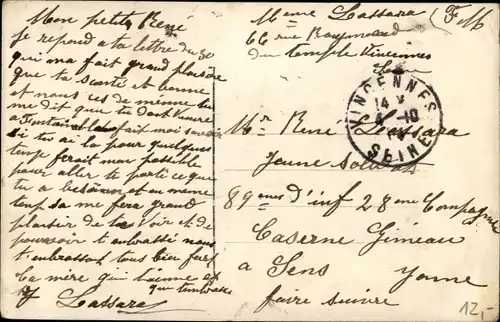 Mon petit René
Je repond a ta lettre du 30
qui ma fait grand plaisire
que ta santé et bonne
et nous ici de meinne tu
me dit que tu doit
a fait moi savoir
si tu ai la pour quelques
temp ferait mon possible
pour aller te porte ce que
tu a besoin et en meme
temp sa me fera grand
plaisir de te voir et de
pouvoir t embrassé nous
t'embrassons tous bien fort
ta mère qui t'aime et
qui tembrasse
Y Lassara
Meme Lassara (F M
66 rue Raymond
du temple Vincennes
Seine
VINCENNES
14
4-10
SEINE
Mr Rene Lassara
Jeune soldat
89eme d'inf 28eme Compagnie
Caserne Gimeau
a Sens Yonne
faire suivre
12,-